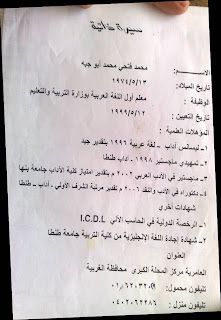 سيرة ذاتية
الاســم: محمد فتحي محمد أبو جبه
تاريخ الميلاد: ١٩٧٤/٥/١٣
الوظيفة : معلم أول اللغة العربية بوزارة التربية والتعليم
تاريخ التعيين : ١٩٩٩/٥/١٢
المؤهلات العلمية :
١- ليسانس آداب – لغة عربية ١٩٩٦ بتقدير جيد
٢- تمهيدي ماجستير ١٩٩٨ . آداب طنطا
٣- ماجستير في الأدب العربي ٢٠٠٢ بتقدير امتياز كلية الآداب جامعة بنها
٤- دكتوراه في الأدب والنقد ٢٠٠٦ م تقدير مرتبة الشرف الأولي – آداب – طنطا
شهادات أخري
١- الرخصة الدولية في الحاسب الآلي I.C.D.L
٢- شهادة إجادة اللغة الإنجليزية من كلية التربية جامعة طنطا
العنوان
العامرية مركز المحلة الكبرى محافظة الغربية
تليفون محمول:
تليفون منزل : ٠٤٠٢٠٦٢٢٨٦